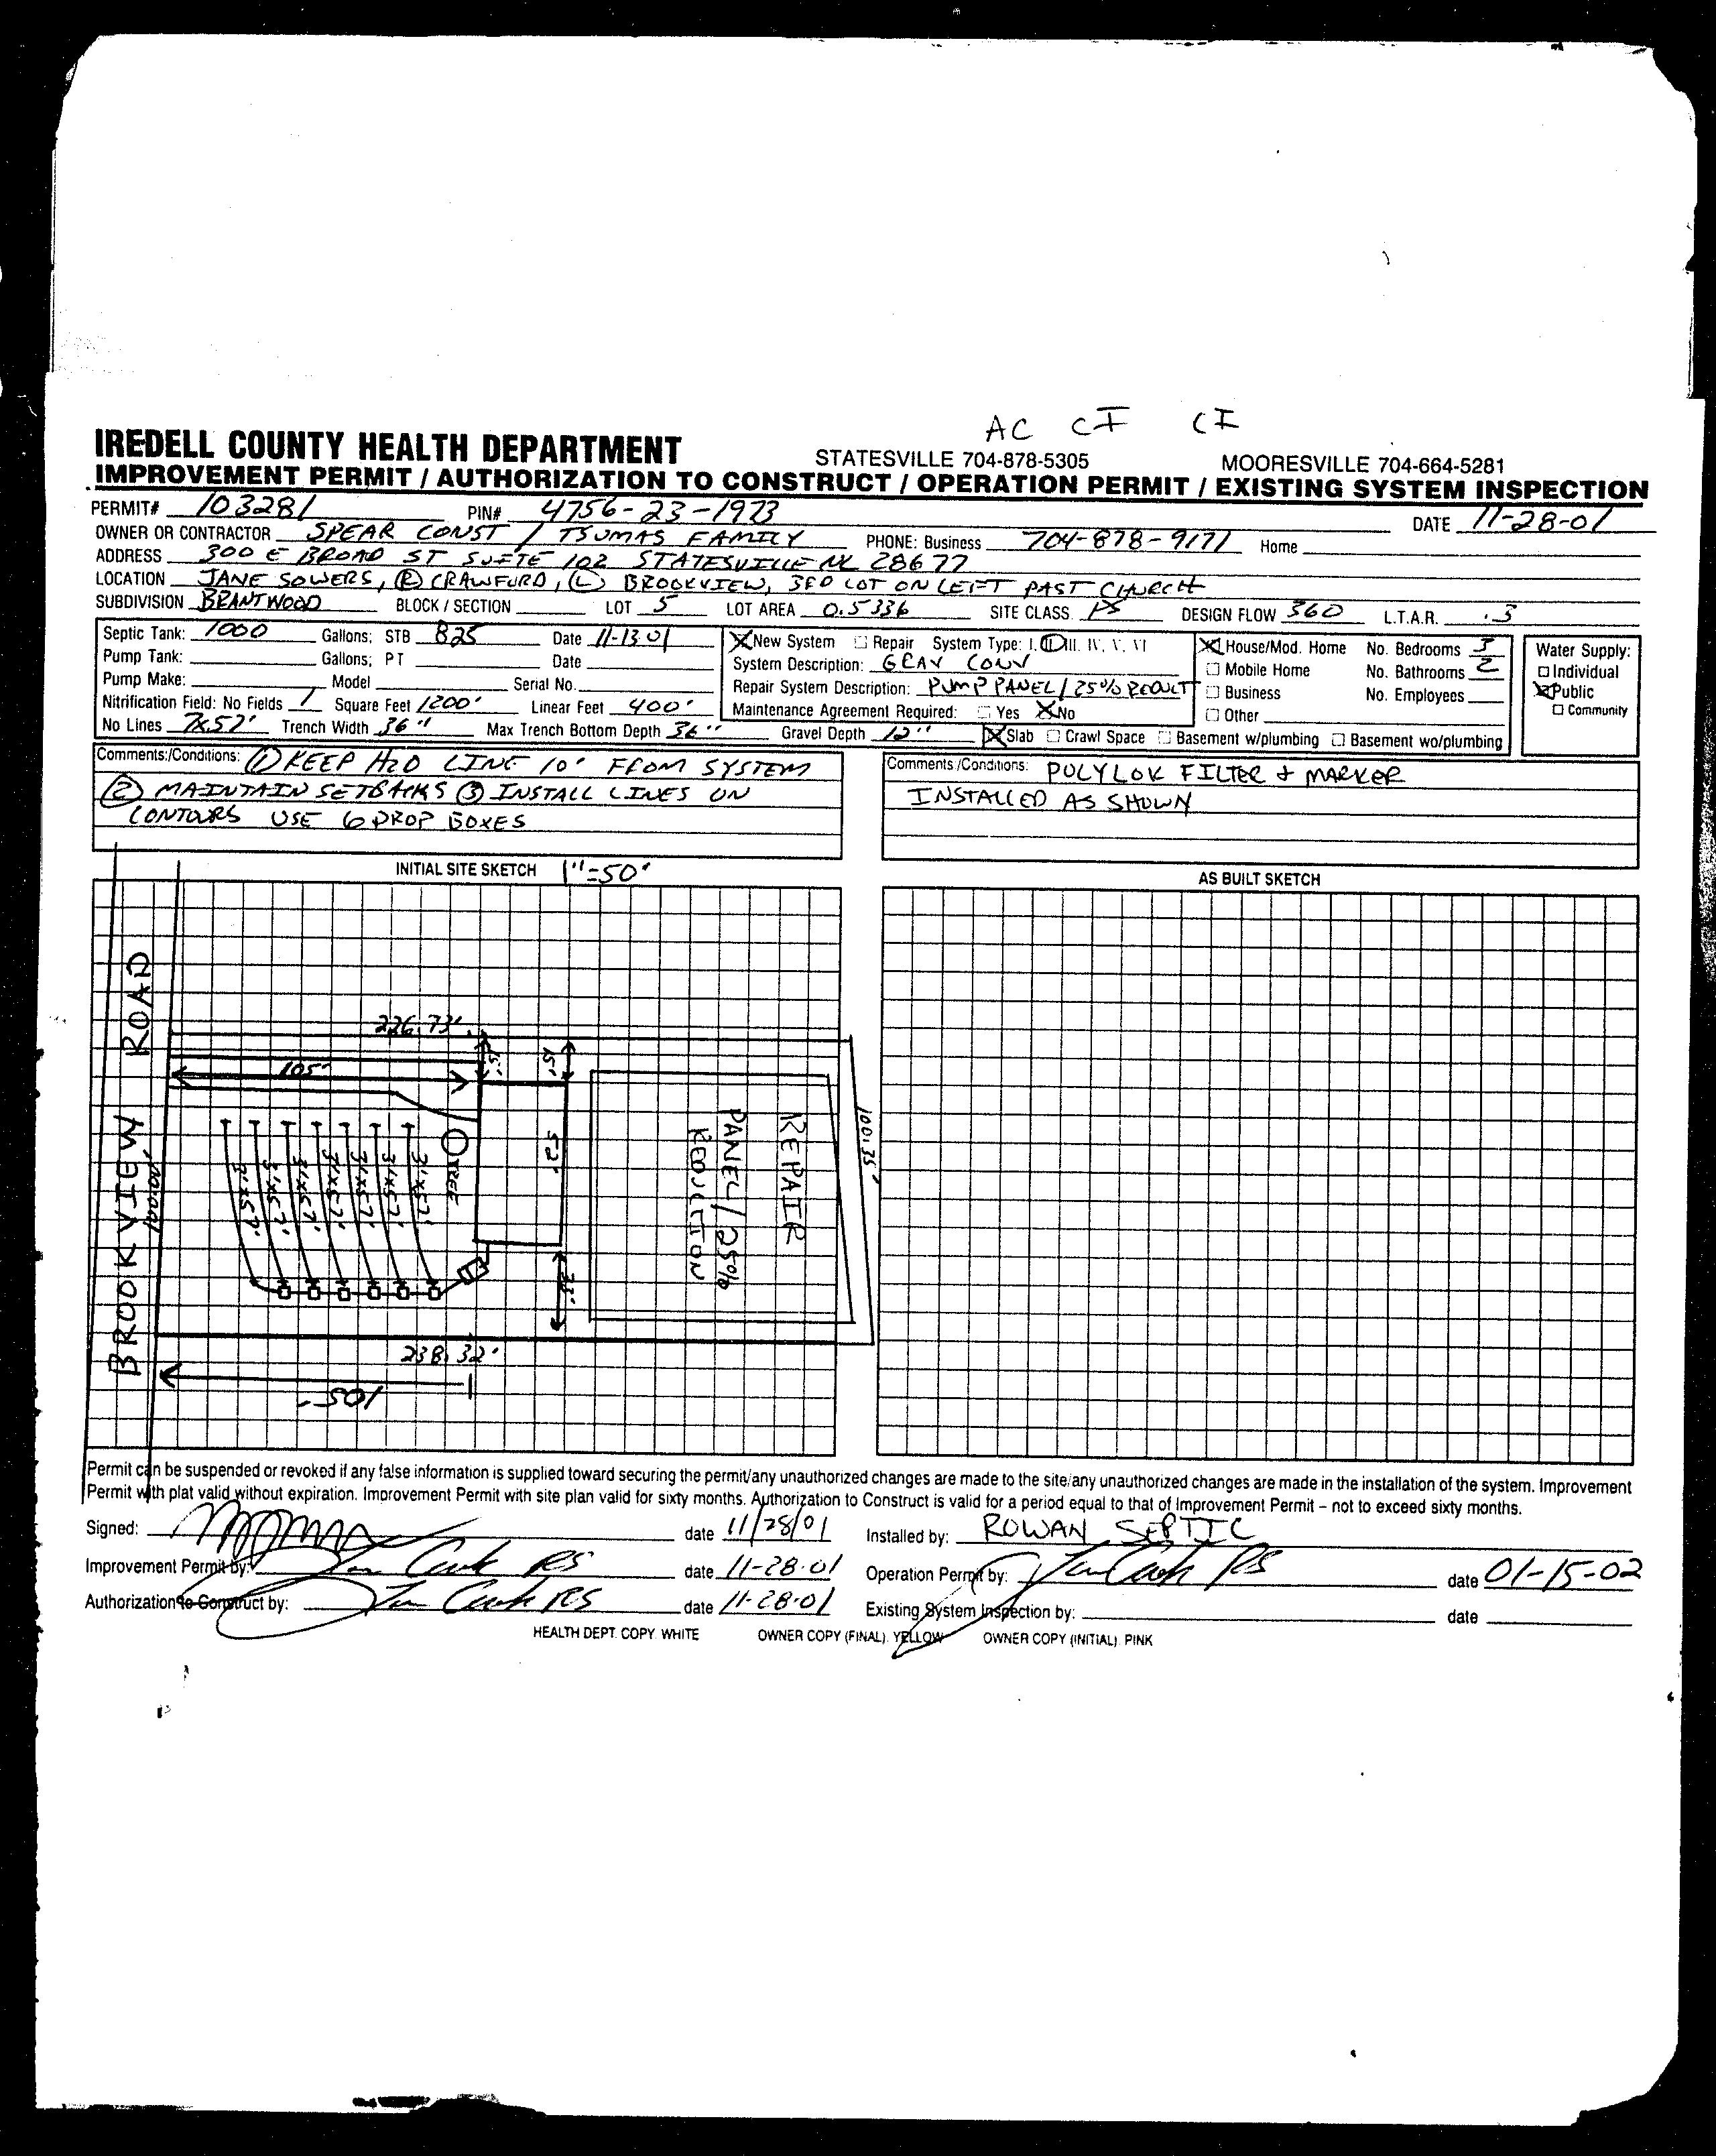 AC CI CI
IREDELL COUNTY HEALTH DEPARTMENT STATESVILLE 704-878-5305 MOORESVILLE 704-664-5281
IMPROVEMENT PERMIT / AUTHORIZATION TO CONSTRUCT / OPERATION PERMIT / EXISTING SYSTEM INSPECTION
PERMIT# 103281 PIN# 4756-23-1973 DATE 11-28-01
OWNER OR CONTRACTOR SPEAR CONST / TSUMAS FAMILY PHONE: Business 704-878-9171 Home
ADDRESS 300 E BROAD ST SUITE 102 STATESVILLE NC 28677
LOCATION JANE SOWERS, (R) CRAWFORD, (L) BROOKVIEW, 3RD LOT ON LEFT PAST CHURCH
SUBDIVISION BRANTWOOD BLOCK / SECTION LOT 5 LOT AREA 0.5336 SITE CLASS. PS DESIGN FLOW 360 L.T.A.R. .3
Septic Tank: 1000 Gallons; STB 825 Date 11-13-01
Pump Tank: Gallons; PT Date
Pump Make: Model Serial No.
Nitrification Field: No Fields 1 Square Feet 1200' Linear Feet 400'
No Lines 7x57' Trench Width 36" Max Trench Bottom Depth 36" Gravel Depth 12"
New System Repair System Type: I. II III. IV, V, VI
System Description: GRAV CONV
Repair System Description: PUMP PANEL / 25% REDUCT
Maintenance Agreement Required: Yes No
Slab Crawl Space Basement w/plumbing Basement wo/plumbing
House/Mod. Home No. Bedrooms 3
Mobile Home No. Bathrooms 2
Business No. Employees
Other
Water Supply:
Individual
Public
Community
Comments:/Conditions: (1) KEEP H2O LINE 10' FROM SYSTEM
(2) MAINTAIN SETBACKS (3) INSTALL LINES ON
CONTOURS USE 6 DROP BOXES
Comments:/Conditions: POLYLOK FILTER + MARKER
INSTALLED AS SHOWN
INITIAL SITE SKETCH 1"=50'
AS BUILT SKETCH
BROOKVIEW ROAD
226.73'
105'
15'
15'
52'
TREE
3'x57'
3'x57'
3'x57'
3'x57'
3'x57'
3'x57'
3'x57'
REPAIR
PANEL / 25%
REDUCTION
100.35'
238.32'
105'
Permit can be suspended or revoked if any false information is supplied toward securing the permit/any unauthorized changes are made to the site/any unauthorized changes are made in the installation of the system. Improvement
Permit with plat valid without expiration. Improvement Permit with site plan valid for sixty months. Authorization to Construct is valid for a period equal to that of Improvement Permit – not to exceed sixty months.
Signed: date 11/28/01 Installed by: ROWAN SEPTIC
Improvement Permit by: RS date 11-28-01 Operation Permit by: RS date 01-15-02
Authorization to Construct by: RS date 11-28-01 Existing System Inspection by: date
HEALTH DEPT. COPY. WHITE OWNER COPY (FINAL). YELLOW OWNER COPY (INITIAL). PINK